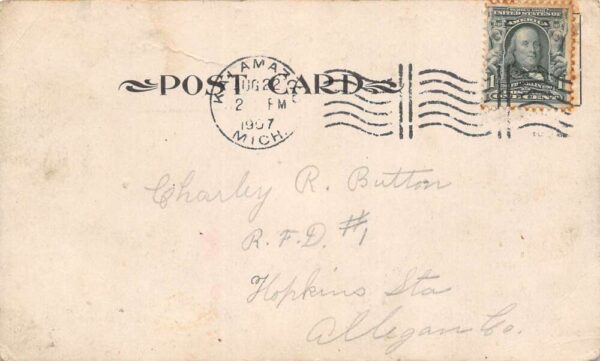 UNITED STATES OF
AMERICA
POST CARD
KALAMAZOO
AUG 22
2 PM
1907
MICH.
1
Charley R. Button
R.F.D. #1
Hopkins Sta
Allegan Co.